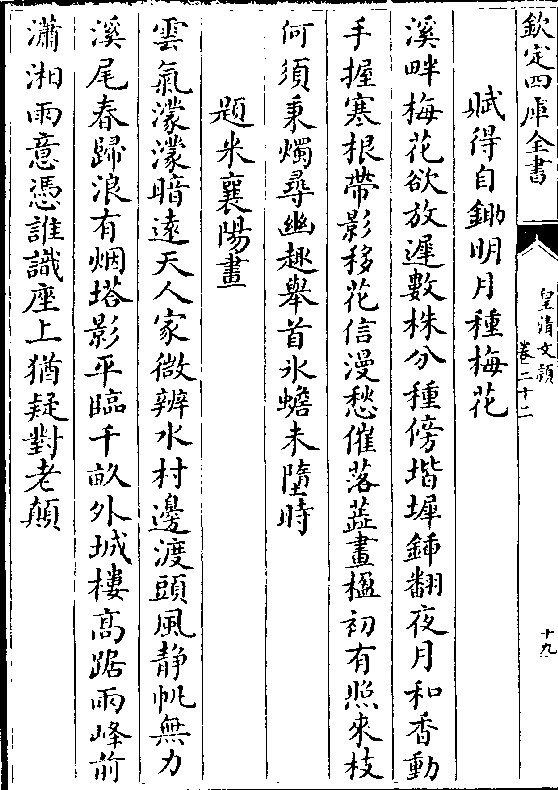 欽定四庫全書
皇清文頴
卷二十二
十九
賦得自鋤明月種梅花
溪畔梅花欲放遲數株分種傍堦墀鍤翻夜月和香動
手握寒根帶影移花信漫愁催落蕋畫楹初有照來枝
何須秉燭尋幽趣舉首氷蟾未墮時
題米襄陽畫
雲氣濛濛暗遠天人家微辨水村邊渡頭風静帆無力
溪尾春歸浪有烟塔影平臨千畝外城樓髙踞兩峰前
瀟湘雨意憑誰識座上猶疑對老顛